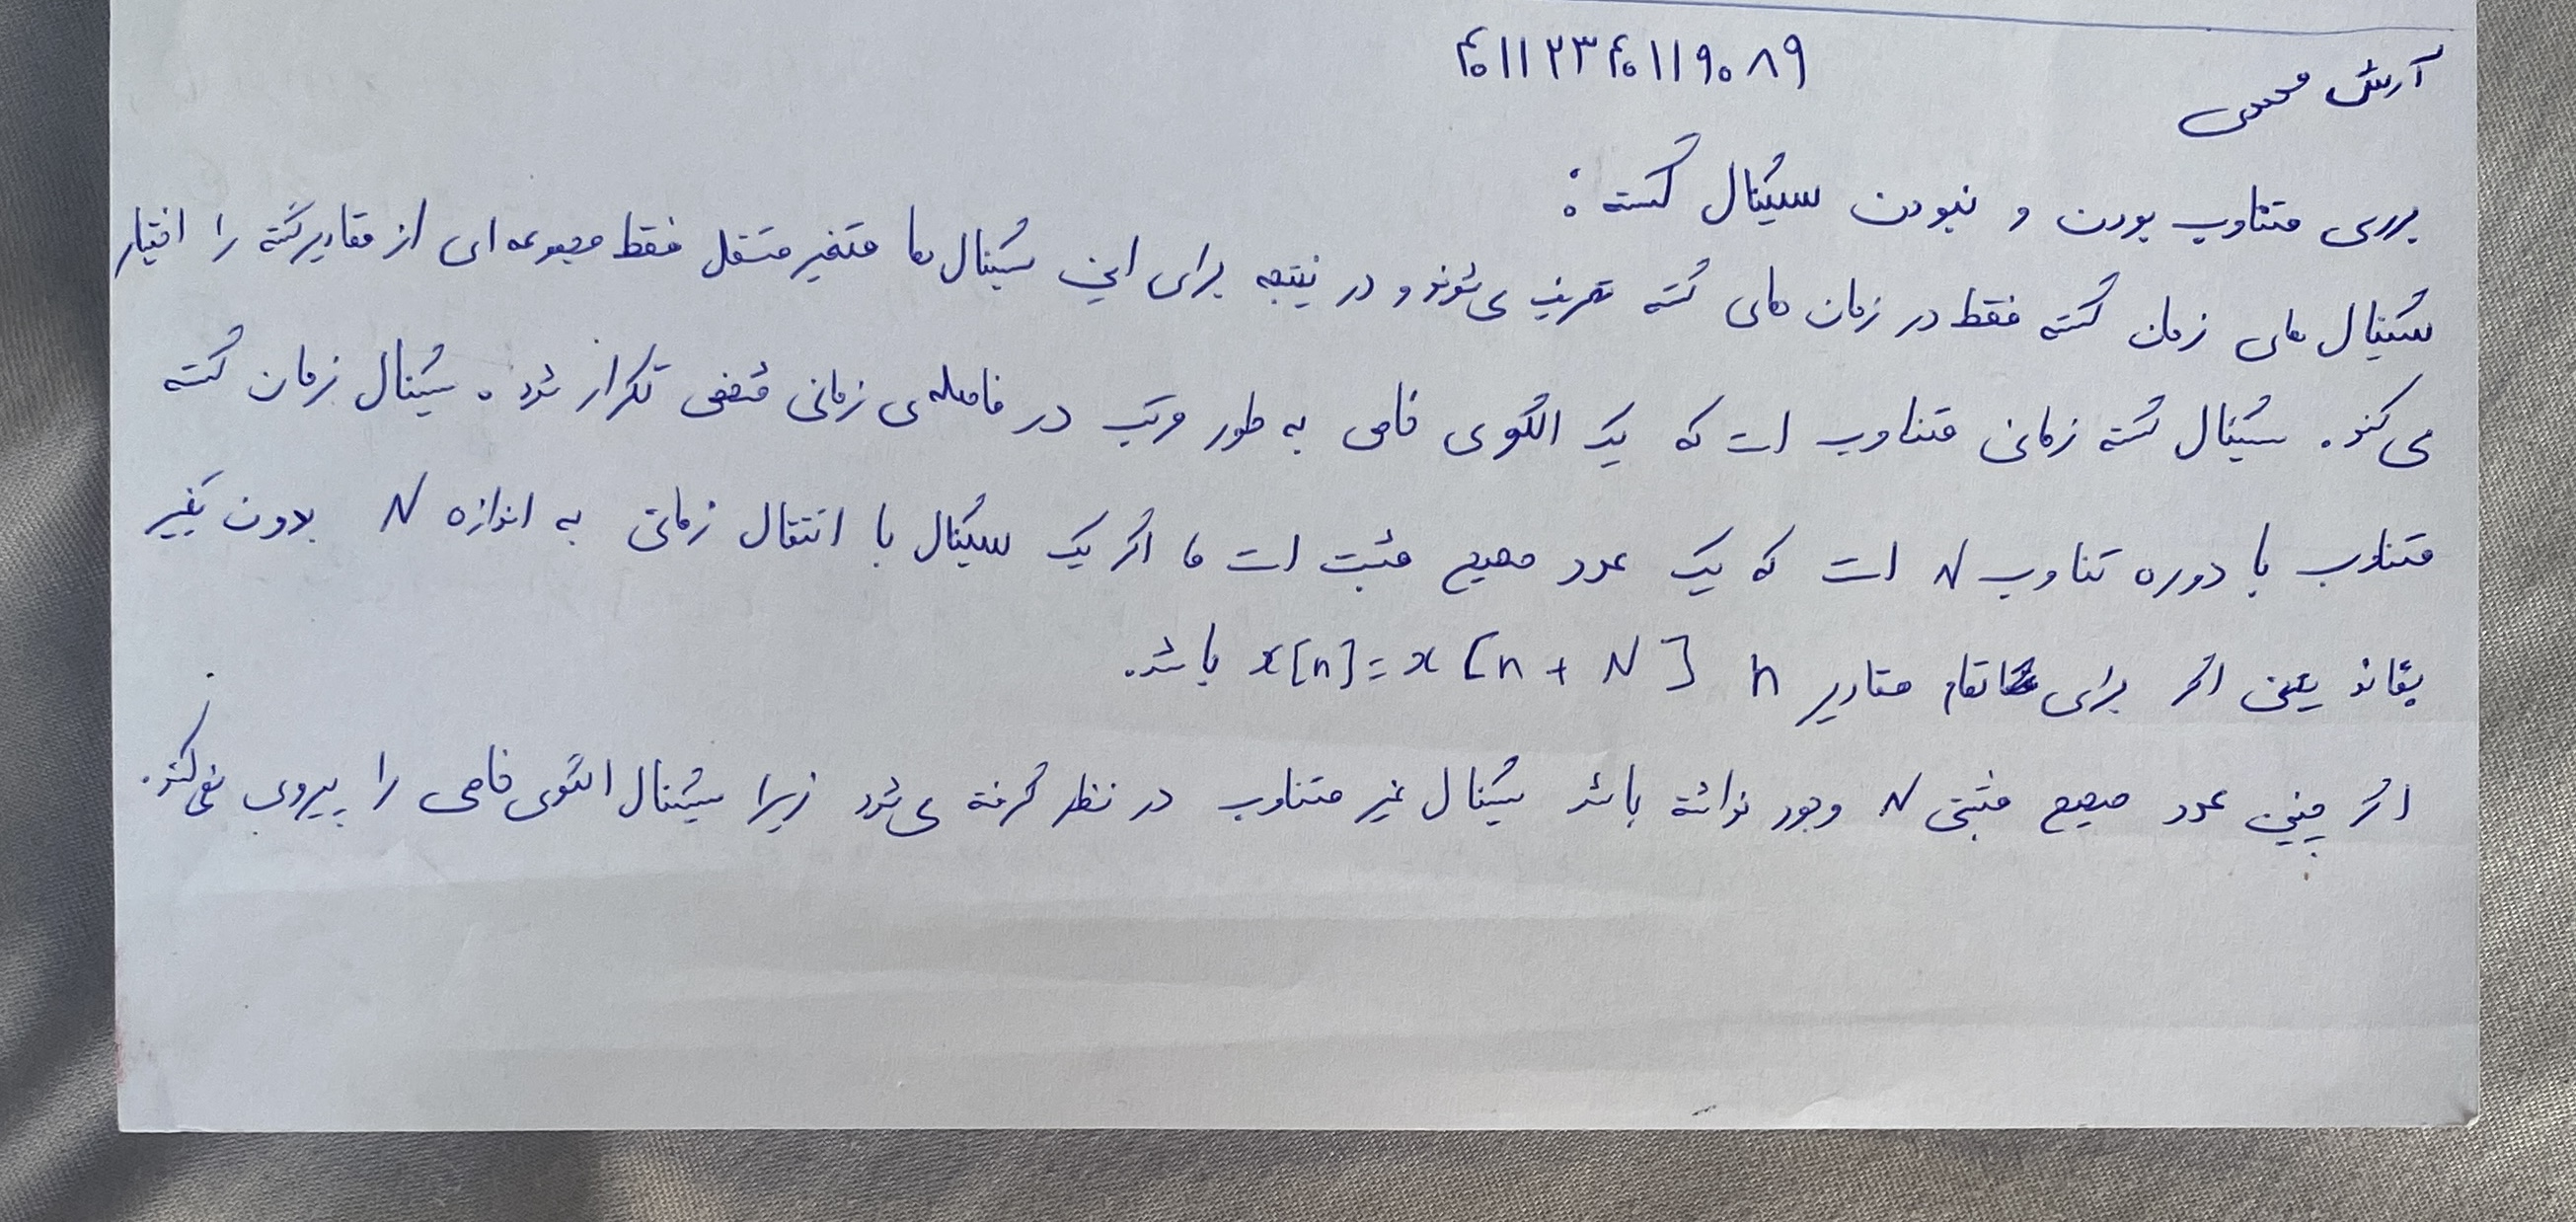 آرش محبی ۴۰۱۱۲۳۴۰۱۱۹۰۸۹
بررسی متناوب بودن و نبودن سیگنال گسسته :
سیگنال های زمان گسسته فقط در زمان های گسسته تعریف می شوند و در نتیجه برای این سیگنال ها متغیر مستقل فقط مجموعه ای از مقادیر گسسته را اختیار
می کند. سیگنال گسسته زمانی متناوب است که یک الگوی خاص به طور مرتب در فاصله ی زمانی مشخص تکرار شود. سیگنال زمان گسسته
متناوب با دوره تناوب N است که یک عدد صحیح مثبت است ، اگر یک سیگنال با انتقال زمانی به اندازه N بدون تغییر
بماند یعنی اگر برای تمام مقادیر n x[n]=x[n+N] باشد.
اگر چنین عدد صحیح مثبتی N وجود نداشته باشد سیگنال غیر متناوب در نظر گرفته می شود زیرا سیگنال الگوی خاصی را پیروی نمی کند.